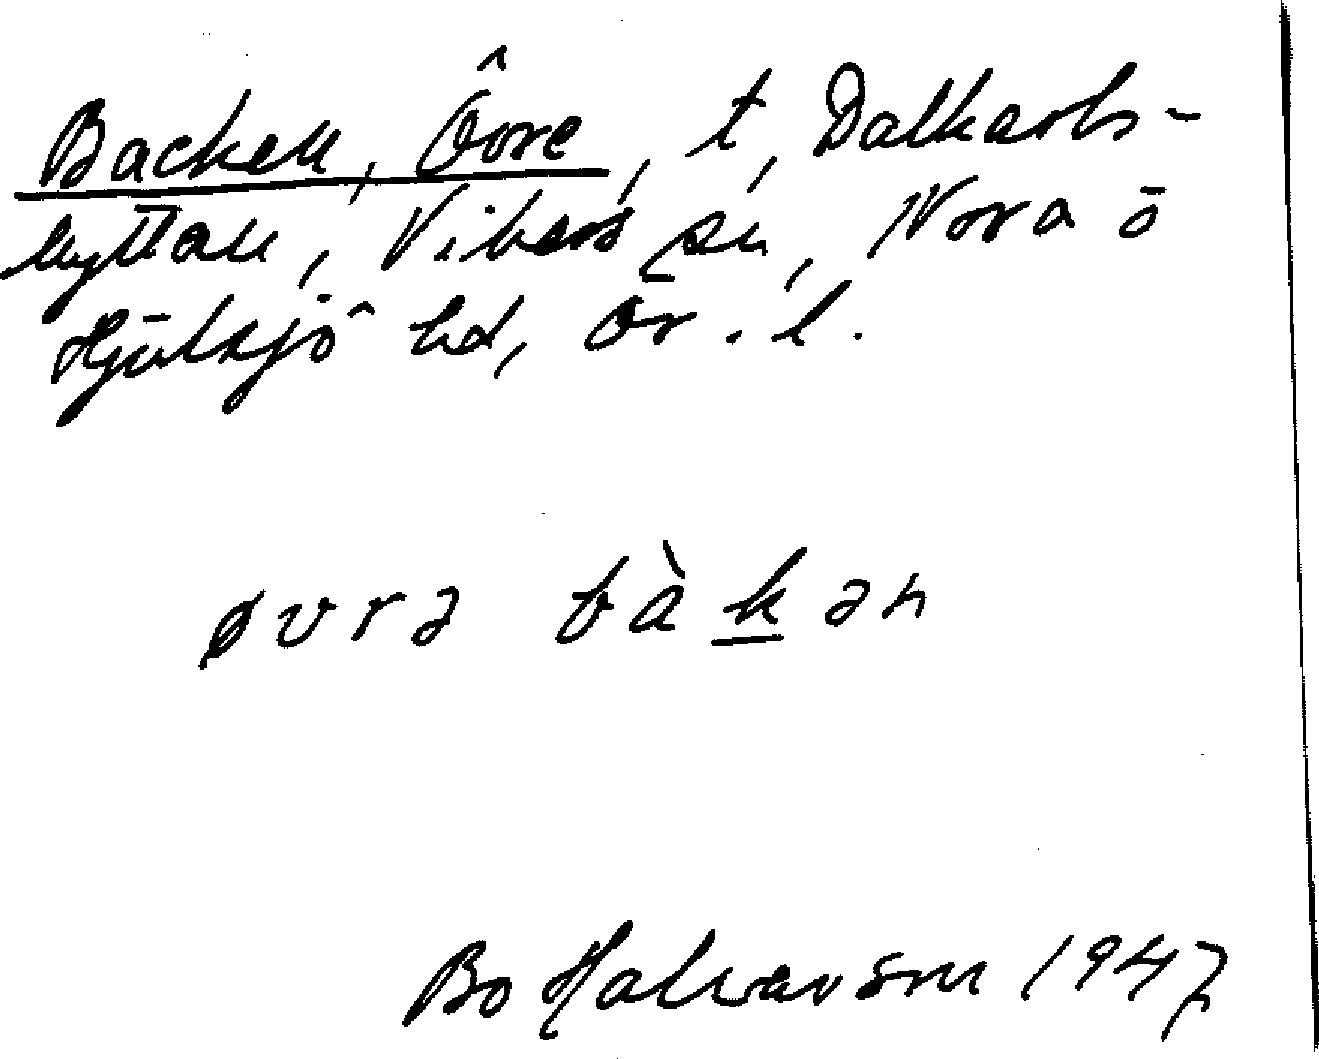 Backen, Övre, t, Dalkarls-
hyttan, Vikers sn, Nora o
Hjulsjö hd, Ör. l.
øvrə bàkən
Bo 1947